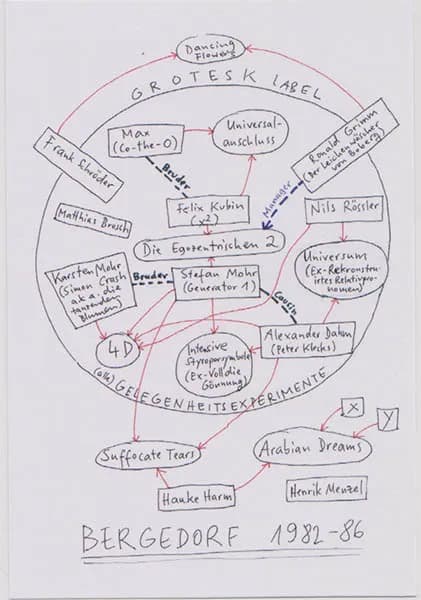 Dancing
Flowers
GROTESK LABEL
Max
(Co-the-O)
Universal-
anschluss
Ronald Grimm
(Der Leichenwäscher
von Boberg)
Frank Schröder
Bruder
Manager
Matthias Brosch
Felix Kubin
(x²)
Nils Rössler
Die Egozentrischen 2
Karsten Mohr
(Simon Crash
a.k.a. die
tanzenden
Blumen)
Bruder
Stefan Mohr
(Generator 1)
Universum
(Ex-Rekonstru-
irtes Relativpro-
nomen)
Cousin
4D
Intensive
Styroporsymbole
(Ex-Volldie
Gönnung)
Alexander Dahm
(Peter Klecks)
(alle) GELEGENHEITSEXPERIMENTE
X
Y
Suffocate Tears
Arabian Dreams
Hauke Harm
Henrik Menzel
BERGEDORF 1982-86